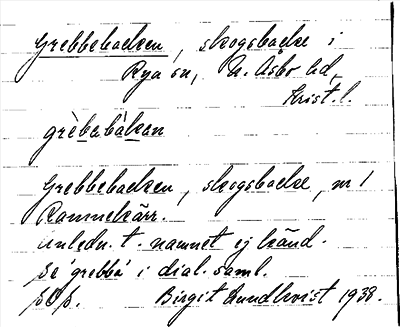 Grebbebacken, skogsbacke i
Rya sn, N. Åsbo hd,
Krist. l.
grèbabàkan
Grebbebacken, skogsbacke, nr 1
Rammekärr.
Anledn. t. namnet ej känd.
Se 'grebba' i dial. saml.
Birgit Lundkvist 1938.